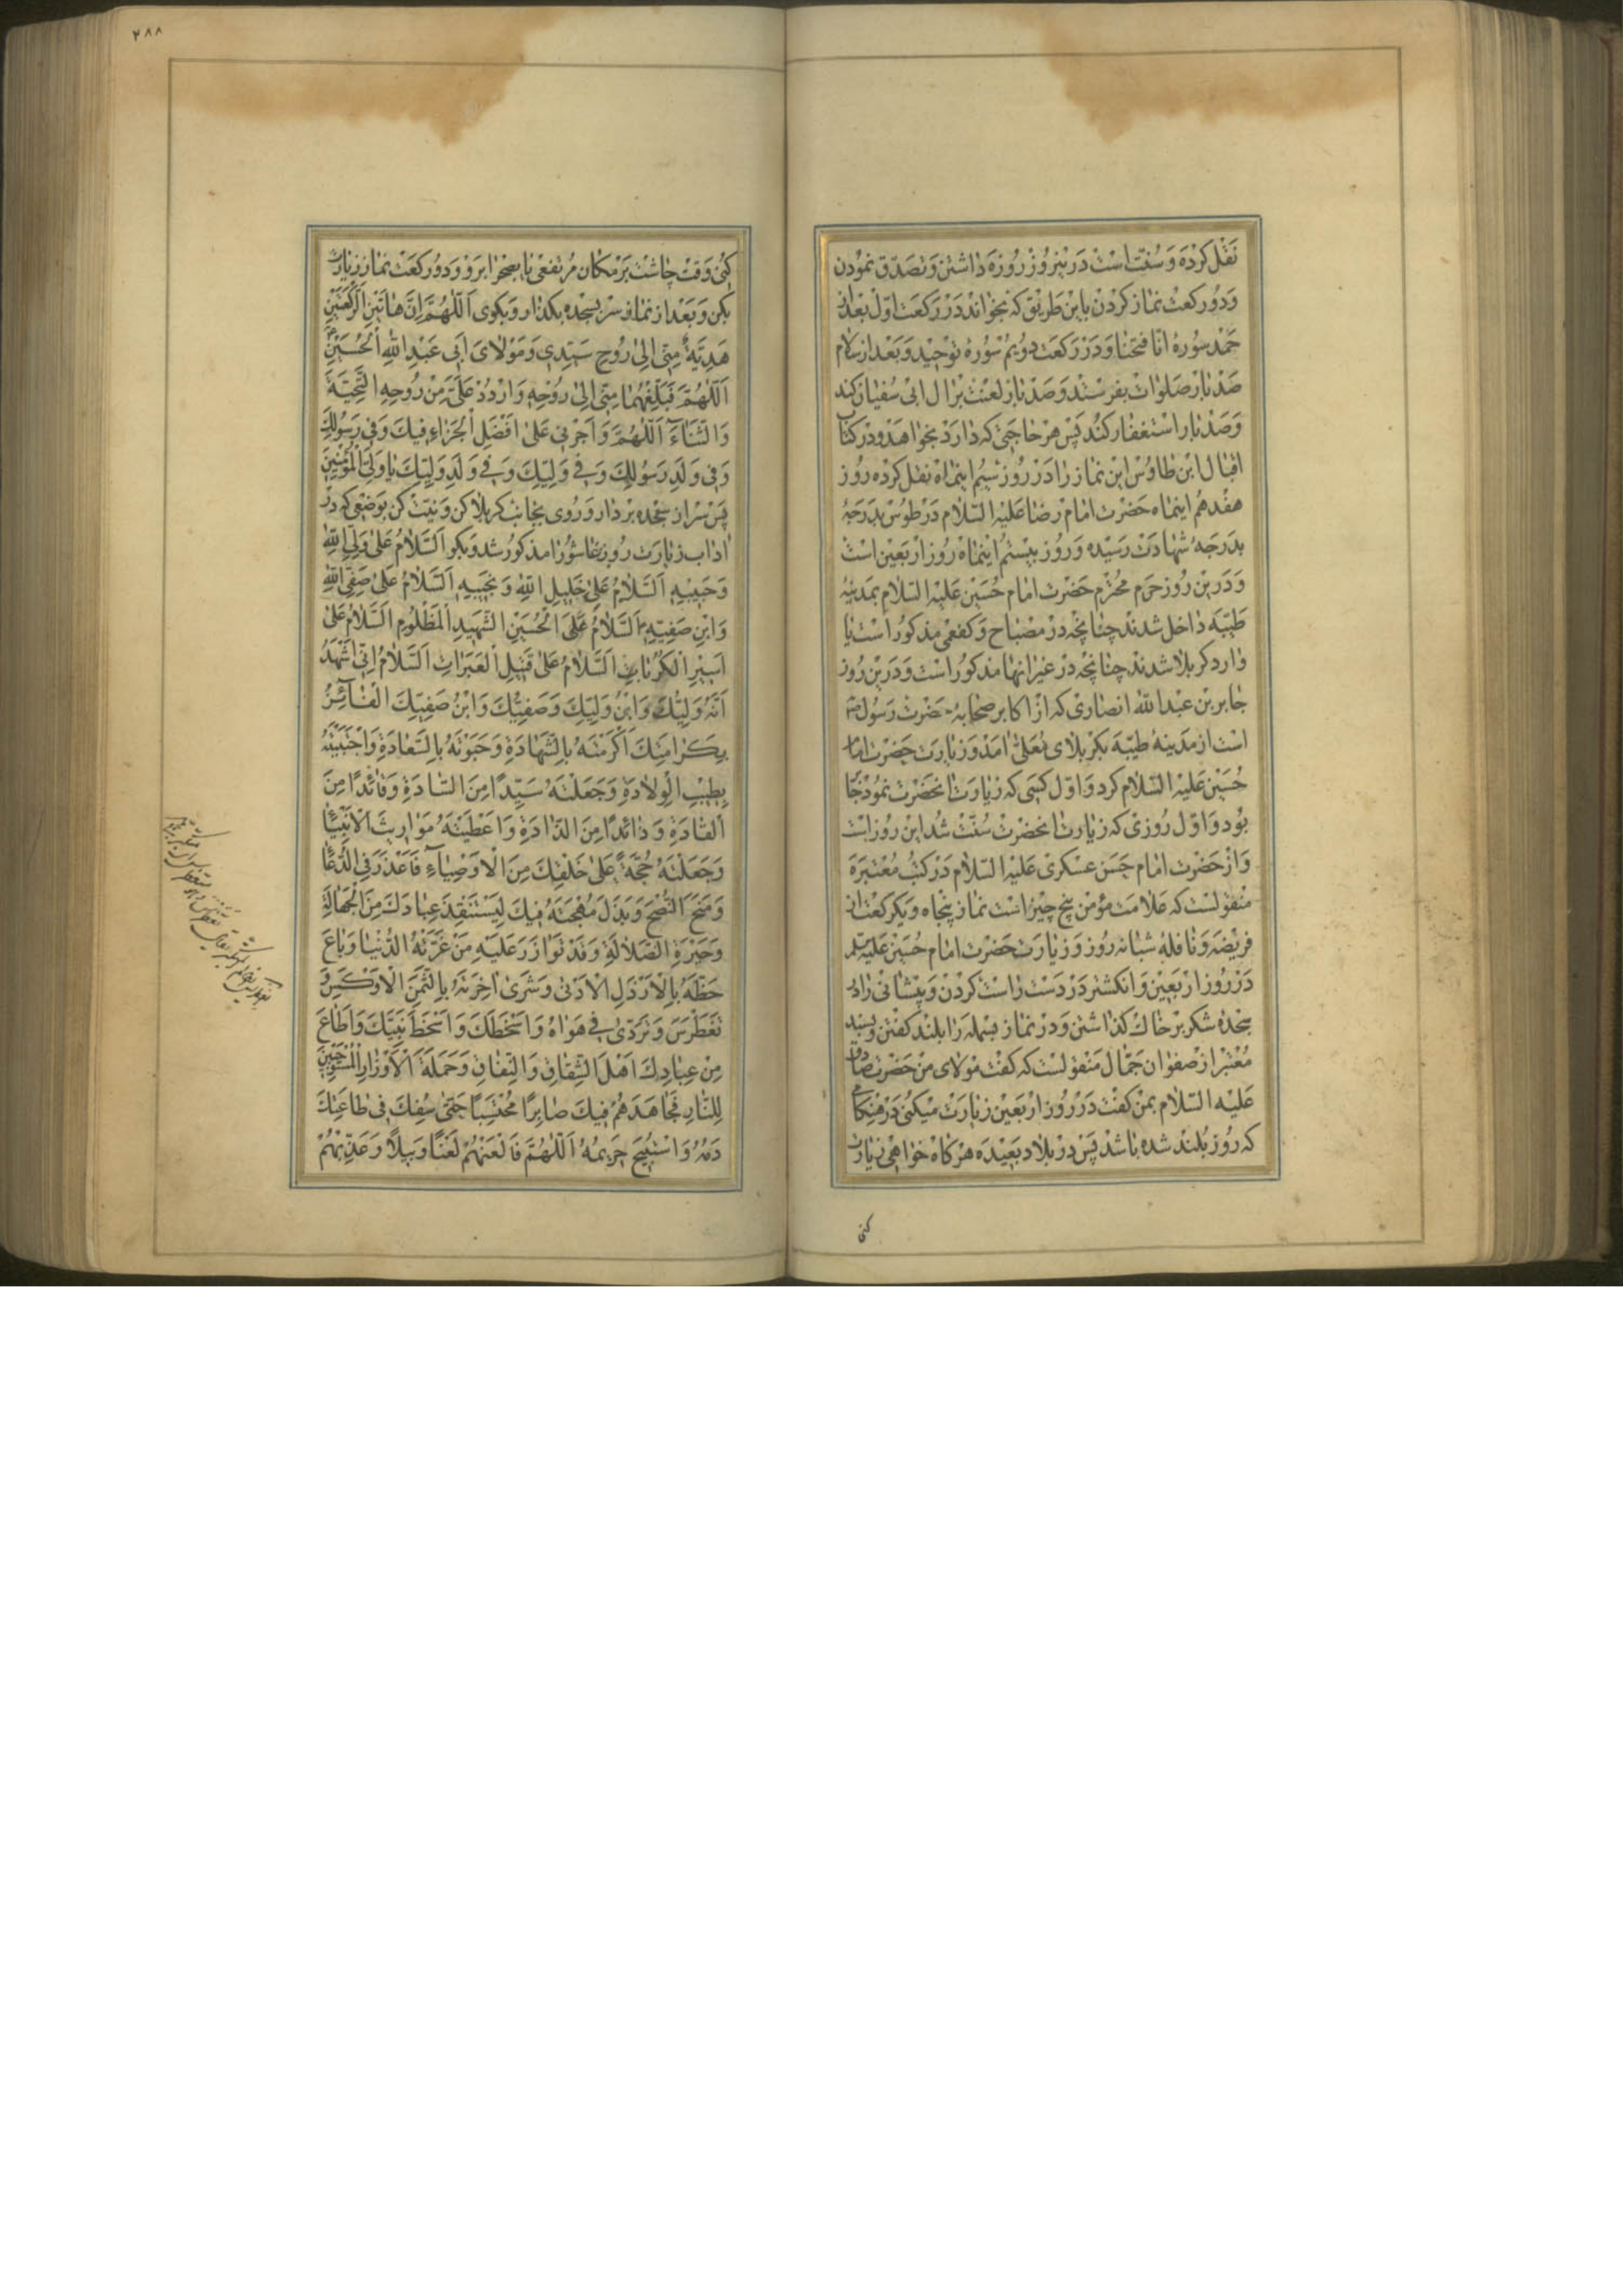 نقل کرده و سنّت است درین روز روزه داشتن و تصدّق نمودن
و دو رکعت نماز کردن باین طریق که بخواند در رکعت اول بعد از
حمد سورهٔ انّا فتحنا و در رکعت دویم سورهٔ توحید و بعد از سلام
صد بار صلوات بفرستد و صد بار لعنت بر ال ابی سفیان کند
و صد بار استغفار کند پس هر حاجتی که دارد بخواهد و در کتاب
اقبال ابن طاوس این نماز را در روز سیم اینماه نقل کرده روز
هفدهم اینماه حضرت امام رضا علیه السّلام در طوس بدرجهٔ
بدرجهٔ شهادت رسیده و روز بیستم اینماه روز اربعین است
و درین روز حرم محترم حضرت امام حسین علیه السّلام بمدینهٔ
طیّبه داخل شدند چنانچه در مصباح و کفعمی مذکور است یا
وارد کربلا شدند چنانچه در غیر انها مذکور است و درین روز
جابر بن عبد الله انصاری که از اکابر صحابهٔ حضرت رسول ص
است از مدینهٔ طیّبه بکربلای معلّی امد و زیارت حضرت امام
حسین علیه السّلام کرد و اوّل کسی که زیارت انحضرت نمود جابر
بود و اوّل روزی که زیارت انحضرت سنّت شد این روز است
و از حضرت امام حسن عسکری علیه السّلام در کتب معتبره
منقولست که علامت مؤمن پنج چیز است نماز پنجاه و یکرکعت از
فریضه و نافلهٔ شبانه روز و زیارت حضرت امام حسین علیه السلم
در روز اربعین و انکشتر در دست راست کردن و پیشانی را در
سجدهٔ شکر بر خاک کذاشتن و در نماز بسمله را بلند کفتن و بسند
معتبر از صفوان جمّال منقولست که کفت مولای من حضرت صادق
علیه السّلام بمن کفت در روز اربعین زیارت میکنی در هنکام
که روز بلند شده باشد پس در بلاد بعیده هرکاه خواهی زیارت
کنی
٢٨٨
کنی وقت چاشت بر مکان مرتفعی یا بصحرا برو و دو رکعت نماز زیارت
بکن و بعد از نماز سر بسجده بکذار و بکوی اَللّهُمَّ اِنَّ هاتَیْنِ الرَّکْعَتَیْنِ
هَدِیَّةٌ مِنّی اِلی رُوحِ سَیِّدِی وَ مَوْلایَ اَبی عَبْدِ اللّهِ الْحُسَیْنِ
اَللّهُمَّ فَبَلِّغْهُما مِنّی اِلی رُوحِهِ وَ ارْدُدْ عَلَیَّ مِنْ رُوحِهِ التَّحِیَّةَ
وَ الثَّناءَ اَللّهُمَّ وَ اَجْرِنی عَلی اَفْضَلِ الْجَزاءِ فیکَ وَ فی رَسُولِکَ
وَ فی وَلَدِ رَسُولِکَ وَ فی وَلِیِّکَ وَ فی وَلَدِ وَلِیِّکَ یا وَلِیَّ الْمُؤْمِنینَ
پس سر از سجده بردار و روی بجانب کربلا کن و نیّت کن بوضعی که در
اداب زیارت روز عاشورا مذکور شد و بکو اَلسَّلامُ عَلی وَلِیِّ اللّهِ
وَ حَبیبِهِ اَلسَّلامُ عَلی خَلیلِ اللّهِ وَ نَجیبِهِ اَلسَّلامُ عَلی صَفِیِّ اللّهِ
وَ ابْنِ صَفِیِّهِ اَلسَّلامُ عَلَی الْحُسَیْنِ الشَّهیدِ الْمَظْلُومِ اَلسَّلامُ عَلی
اَسیرِ الْکُرُباتِ اَلسَّلامُ عَلی قَتیلِ الْعَبَراتِ اَلسَّلامُ اِنّی اَشْهَدُ
اَنَّهُ وَلِیُّکَ وَ ابْنُ وَلِیِّکَ وَ صَفِیُّکَ وَ ابْنُ صَفِیِّکَ الْفائِزُ
بِکَرامَتِکَ اَکْرَمْتَهُ بِالشَّهادَةِ وَ حَبَوْتَهُ بِالسَّعادَةِ وَ اجْتَبَیْتَهُ
بِطیبِ الْوِلادَةِ وَ جَعَلْتَهُ سَیِّدًا مِنَ السّادَةِ وَ قائِدًا مِنَ
الْقادَةِ وَ ذائِدًا مِنَ الذّادَةِ وَ اَعْطَیْتَهُ مَواریثَ الْاَنْبِیاءِ
وَ جَعَلْتَهُ حُجَّةً عَلی خَلْقِکَ مِنَ الْاَوْصِیاءِ فَاَعْذَرَ فِی الدُّعاءِ
وَ مَنَحَ النُّصْحَ وَ بَذَلَ مُهْجَتَهُ فیکَ لِیَسْتَنْقِذَ عِبادَکَ مِنَ الْجَهالَةِ
وَ حَیْرَةِ الضَّلالَةِ وَ قَدْ تَوازَرَ عَلَیْهِ مَنْ غَرَّتْهُ الدُّنْیا وَ باعَ
حَظَّهُ بِالْاَرْذَلِ الْاَدْنی وَ شَری اخِرَتَهُ بِالثَّمَنِ الْاَوْکَسِ وَ
تَغَطْرَسَ وَ تَرَدّی فی هَواهُ وَ اَسْخَطَکَ وَ اَسْخَطَ نَبِیَّکَ وَ اَطاعَ
مِنْ عِبادِکَ اَهْلَ الشِّقاقِ وَ النِّفاقِ وَ حَمَلَةَ الْاَوْزارِ الْمُسْتَوْجِبینَ
لِلنّارِ فَجاهَدَهُمْ فیکَ صابِرًا مُحْتَسِبًا حَتّی سُفِکَ فی طاعَتِکَ
دَمُهُ وَ اسْتُبیحَ حَریمُهُ اَللّهُمَّ فَالْعَنْهُمْ لَعْنًا وَبیلًا وَ عَذِّبْهُمْ